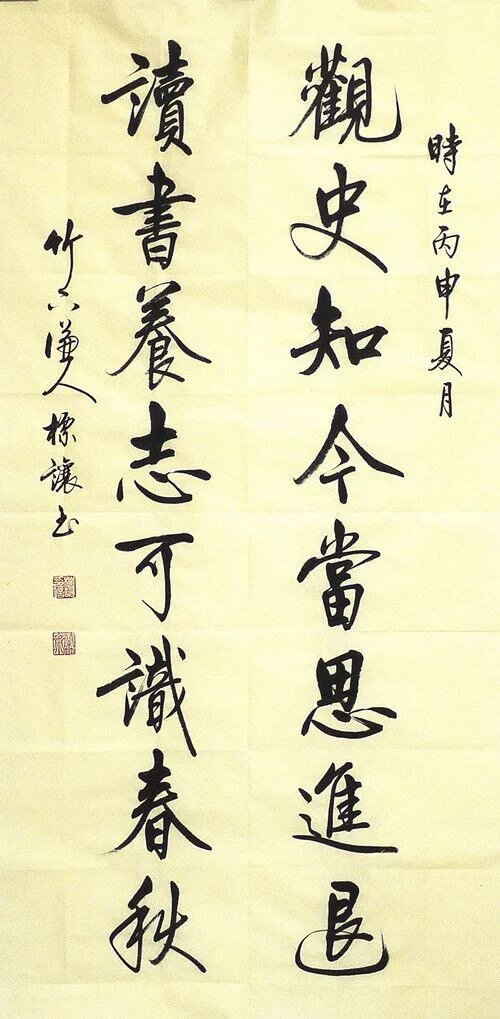 時在丙申夏月
觀史知今當思進退
讀書養志可識春秋
竹下謙人標讓書